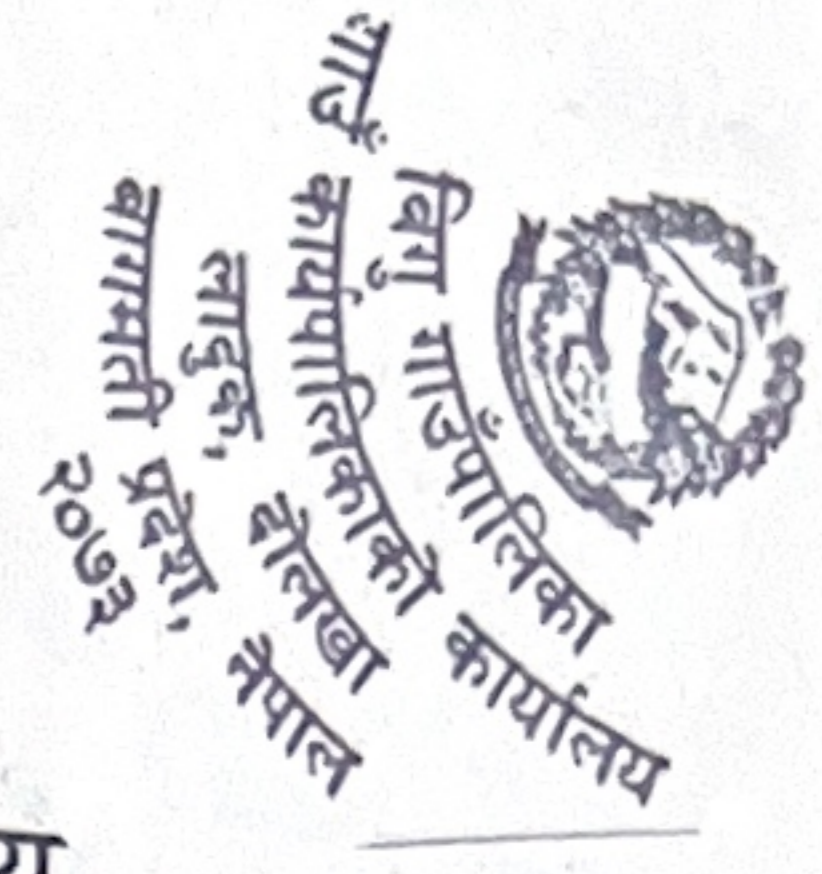 बिगु गाउँपालिका
गाउँ कार्यपालिकाको कार्यालय
लादुक, दोलखा
बागमती प्रदेश, नेपाल
२०७३